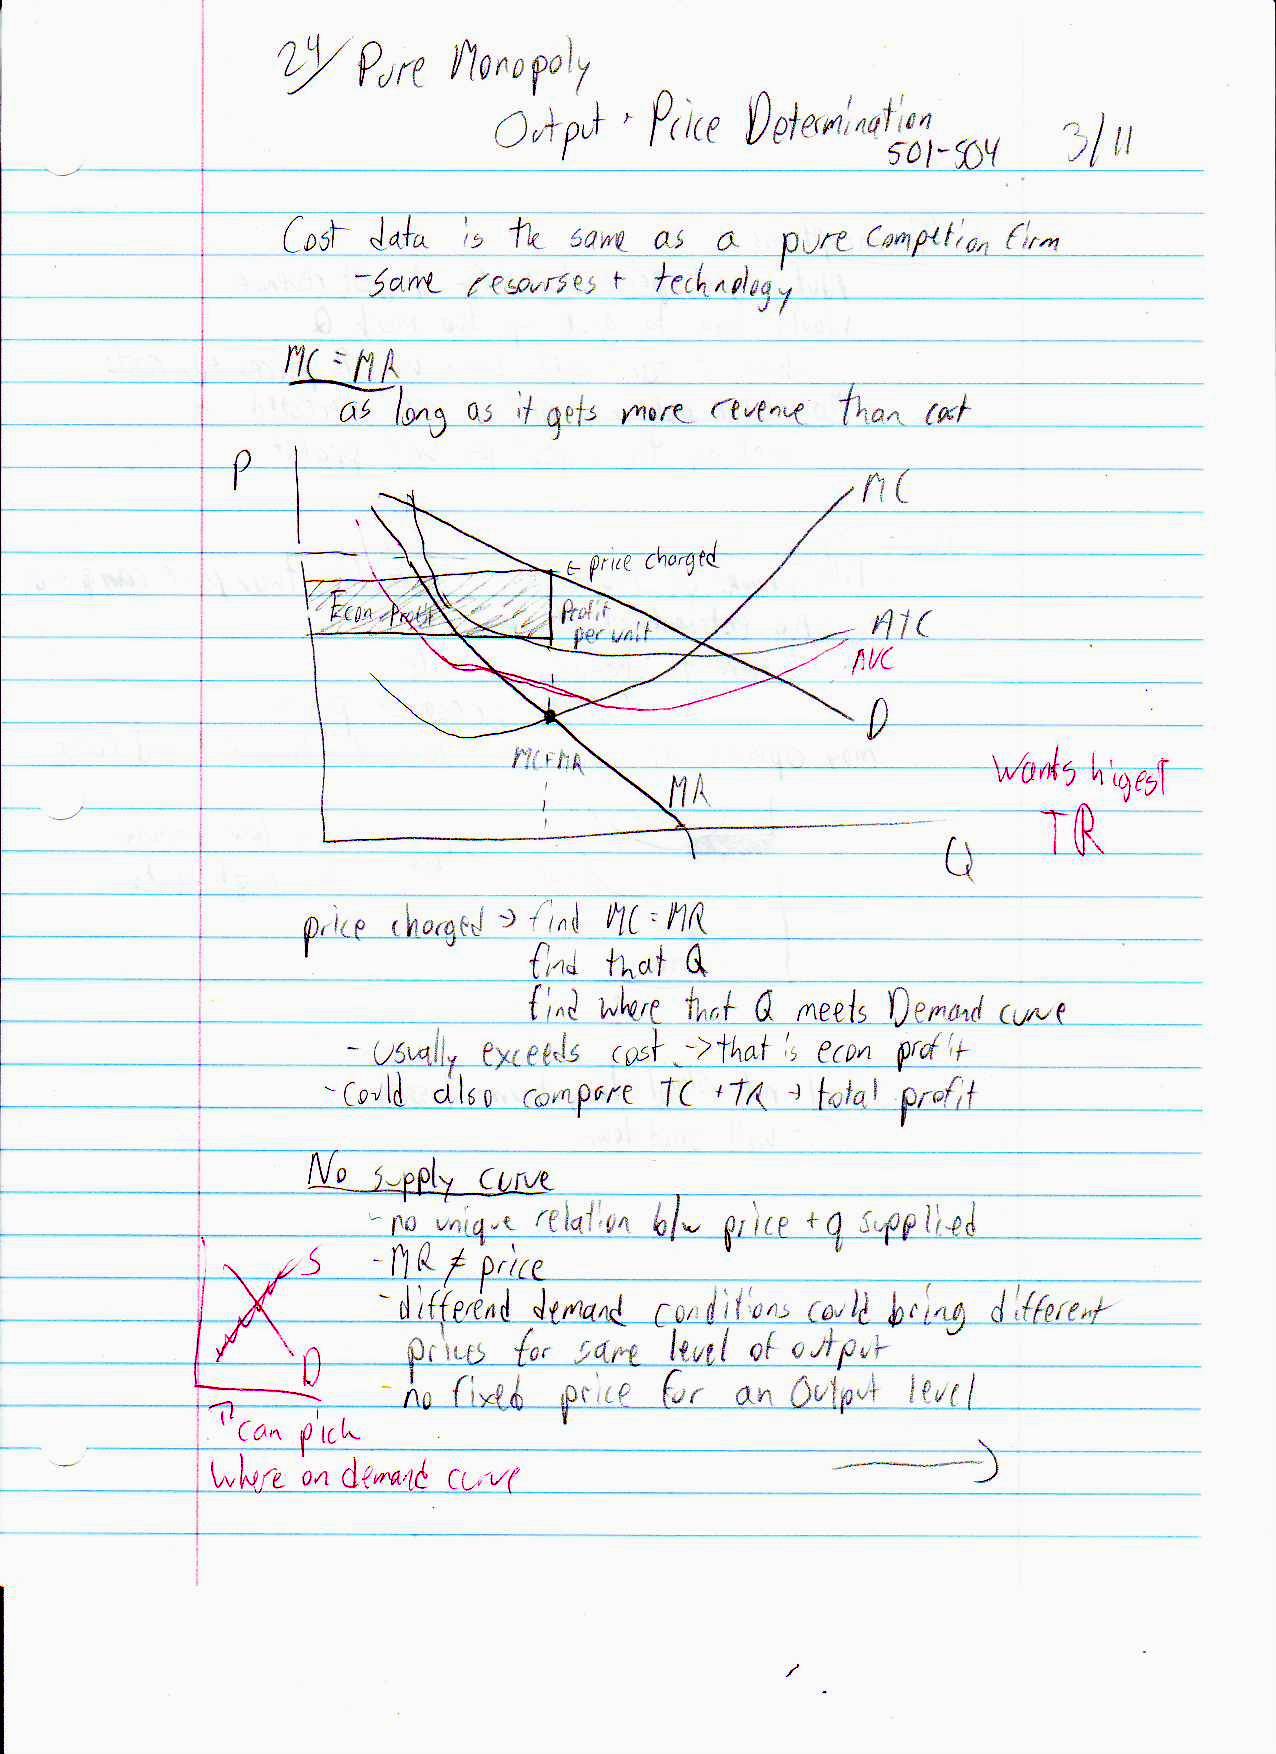 24/ Pure Monopoly
Output + Price Determination
501-504 3/11
Cost data is the same as a pure competion firm
-same resourses + technology
MC = MR
as long as it gets more revenue than cost
P
MC
← price charged
Econ Profit
Profit
per unit
ATC
AVC
D
MC=MR
MR
Q
Wants higest
TR
price charged → find MC = MR
find that Q
find where that Q meets Demand curve
- usually exceeds cost -> that is econ profit
- could also compare TC + TR → total profit
No supply curve
- no unique relation b/w price + q supplied
- MR ≠ price
- differend demand conditions could bring different
prices for same level of output
- no fixed price for an output level
S
D
↑ can pick
where on demand curve